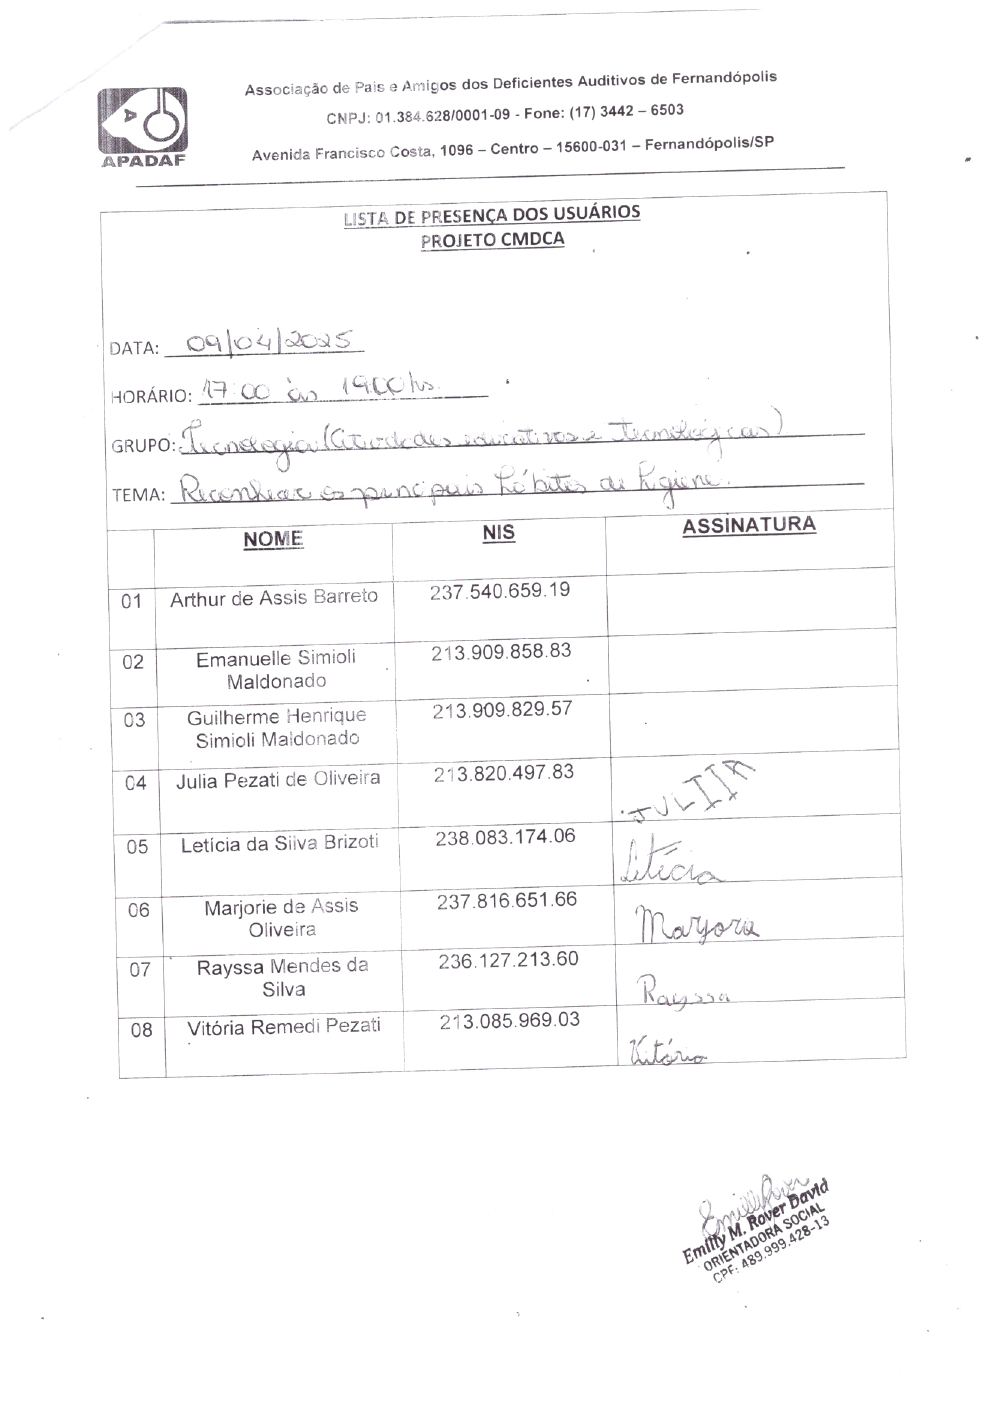 Associação de Pais e Amigos dos Deficientes Auditivos de Fernandópolis
CNPJ: 01.384.628/0001-09 - Fone: (17) 3442 – 6503
Avenida Francisco Costa, 1096 – Centro – 15600-031 – Fernandópolis/SP
APADAF
LISTA DE PRESENÇA DOS USUÁRIOS
PROJETO CMDCA
DATA: 09/04/2025
HORÁRIO: 17:00 às 19:00hs.
GRUPO: Tecnologia (Atividades educativas e Tecnológicas)
TEMA: Reconhecer os principais hábitos de higiene.
NOME NIS ASSINATURA
01 Arthur de Assis Barreto 237.540.659.19
02 Emanuelle Simioli Maldonado 213.909.858.83
03 Guilherme Henrique Simioli Maldonado 213.909.829.57
04 Julia Pezati de Oliveira 213.820.497.83 JULIIA
05 Letícia da Silva Brizoti 238.083.174.06 Letícia
06 Marjorie de Assis Oliveira 237.816.651.66 Marjorie
07 Rayssa Mendes da Silva 236.127.213.60 Rayssa
08 Vitória Remedi Pezati 213.085.969.03 Vitória
Emilly M. Rover David
ORIENTADORA SOCIAL
CPF: 489.999.428-13